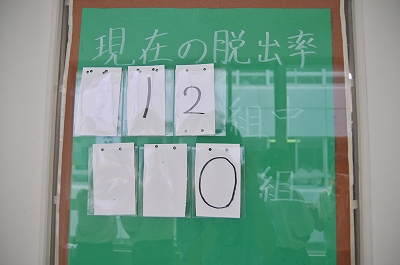 現在の脱出率
12組中
0組